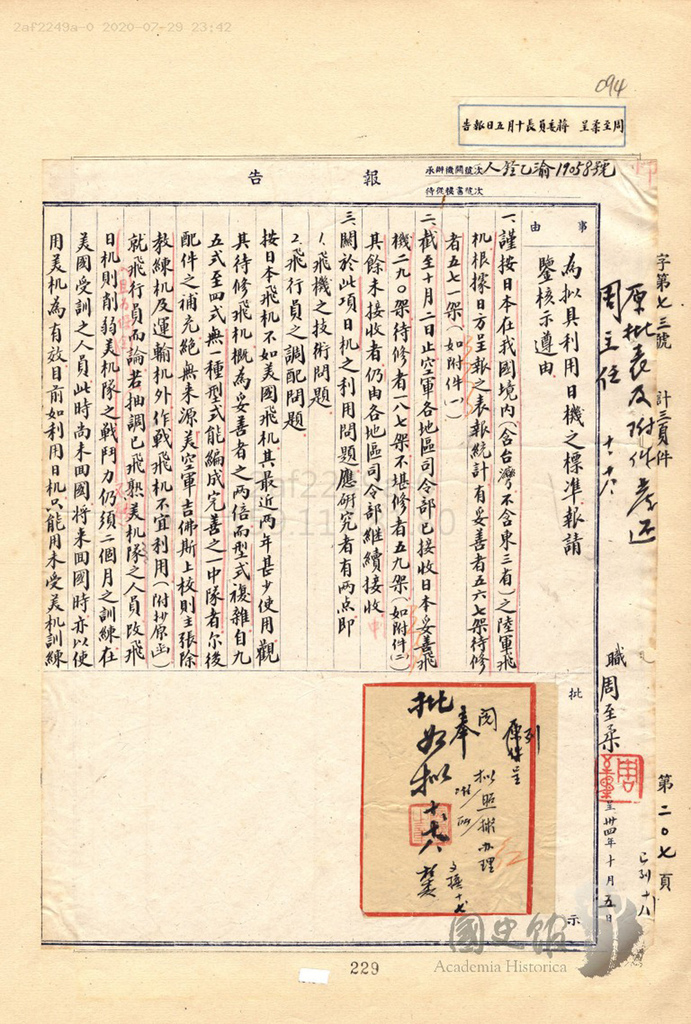 2af2249a-0 2020-07-29 23:42
094
周至柔呈 蔣委員長十月五日報告
報告
承辦機關號次人銓乙渝19058號
待從室摘號次
字第七三號 計三頁件 第二〇七頁
原批表及附件存还
周主任 十、六
職周至柔
呈 卅四年十月五日
已列十八
事由
為拟具利用日機之標準報請
鑒核示遵由
一、謹按日本在我國境內(含台灣不含東三省)之陸軍飛
机根據日方呈報之表報統計有妥善者五六七架待修
者五七一架(如附件一)
二、截至十月二日止空軍各地區司令部已接收日本妥善飛
機二九〇架待修者一八七架不堪修者五九架(如附件二)
其餘未接收者仍由各地區司令部繼續接收
三、關於此項日机之利用問題應研究者有兩点即
1.飛機之技術問題
2.飛行員之調配問題
按日本飛机不如美國飛机其最近兩年甚少使用觀
其待修飛机概為妥善者之兩倍而型式複雜自九
五式至四式無一種型式能編成完善之一中隊者尔後
配件之補充絕無来源美空軍吉佛斯上校則主張除
教練机及運輸机外作戰飛机不宜利用(附抄原函)
就飛行員而論若抽調已飛熟美机隊之人員改飛
日机則削弱美机隊之戰鬥力仍須二個月之訓練在
美國受訓之人員此時尚未囬國將来囬國時亦以使
用美机為有效目前如利用日机只能用未受美机訓練
批示
原件呈
閱 拟照辦办理
奉
批如拟 十、六
國史館
Academia Historica
229